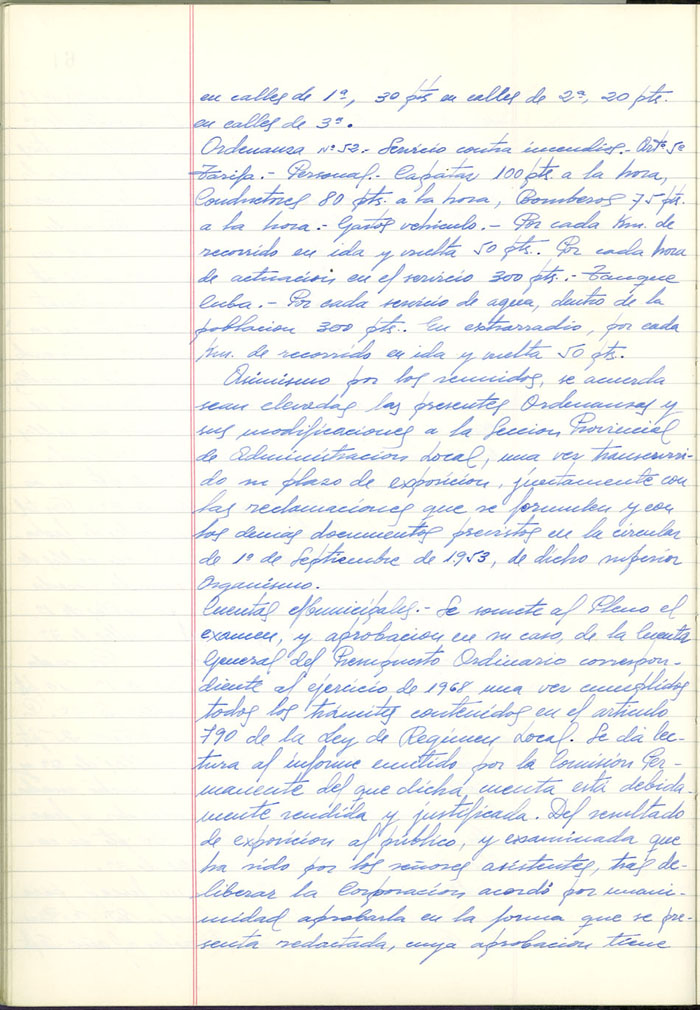 en calles de 1ª, 30 pts en calles de 2ª, 20 pts.
en calles de 3ª.
Ordenanza Nº 52.- Servicio contra incendios.- Artº 5º
Tarifa.- Personal.- Capataz 100 pts. a la hora,
Conductores 80 pts. a la hora, Bomberos 75 pts.
a la hora.- Gastos vehiculo.- Por cada Km. de
recorrido en ida y vuelta 50 pts. Por cada hora
de actuacion en el servicio 300 pts.- Tanque
Cuba.- Por cada servicio de agua, dentro de la
poblacion 300 pts. En extrarradio, por cada
Km. de recorrido en ida y vuelta 50 pts.
Asimismo por los reunidos, se acuerda
sean elevadas las presentes Ordenanzas y
sus modificaciones a la Seccion Provincial
de Administracion Local, una vez transcurri-
do su plazo de exposicion, juntamente con
las reclamaciones que se formulen y con
los demas documentos previstos en la circular
de 1º de Septiembre de 1953, de dicho superior
Organismo.
Cuentas Municipales.- Se somete al Pleno el
examen, y aprobacion en su caso, de la Cuenta
General del Presupuesto Ordinario correspon-
diente al ejercicio de 1968 una vez cumplidos
todos los trámites contenidos en el artículo
790 de la Ley de Regimen Local. Se dá lec-
tura al informe emitido por la Comisión Per-
manente del que dicha cuenta está debida-
mente rendida y justificada. Del resultado
de exposicion al público, y examinada que
ha sido por los señores asistentes, tras de-
liberar la Corporacion acordó por unani-
midad aprobarla en la forma que se pre-
senta redactada, cuya aprobacion tiene